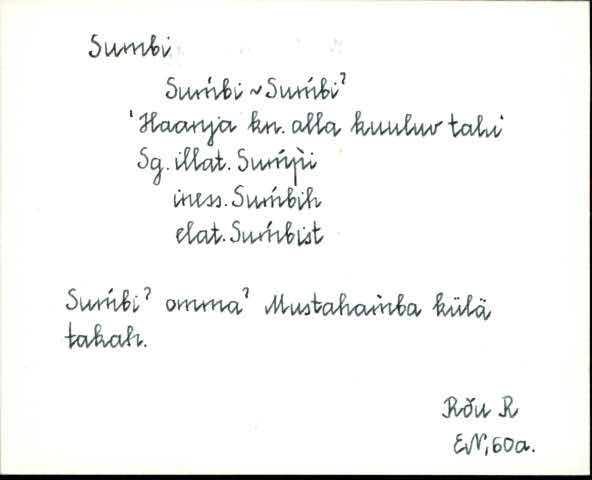 Sumbi
Suḿbi ~ Suḿbiˀ
'Haanja kn. alla kuuluv talu'
Sg. illat. Suḿp̀i
iness. Suḿbih
elat. Suḿbist
Suḿbiˀ ommaˀ Mustahańba külä
takah.
Rõu R
EN, 60a.